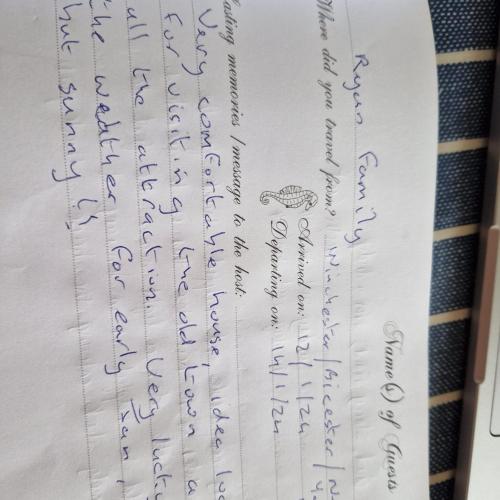 Name(s) of Guests
Ryan Family
Where did you travel from? Winchester/Bicester/N
Arrived on: 12/1/24
Departing on: 14/1/24
lasting memories/message to the host:
Very comfortable house, idea loc
for visiting the old town a
all the attraction. Very lucky
the weather for early Jan,
but sunny